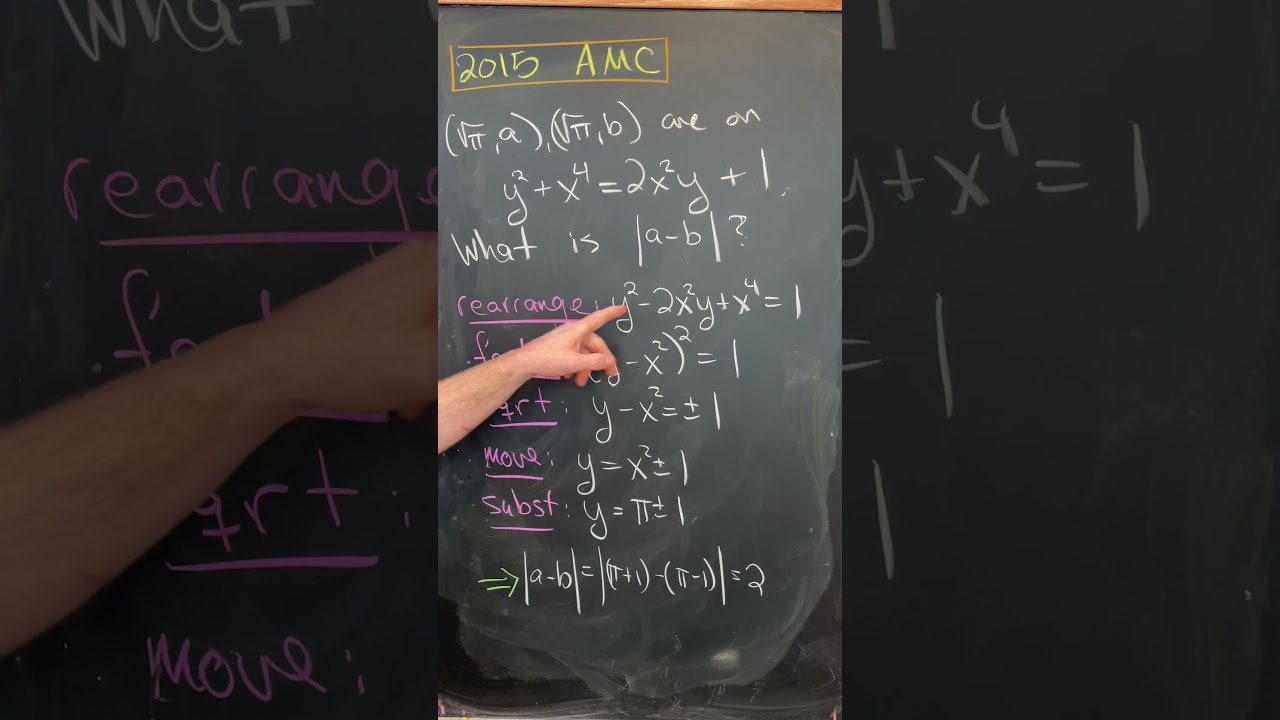 2015 AMC
(√π, a), (√π, b) are on
y² + x⁴ = 2x²y + 1.
What is |a-b|?
rearrange: y² - 2x²y + x⁴ = 1
- x²)² = 1
qrt: y - x² = ± 1
move: y = x² ± 1
subst: y = π ± 1
⇒ |a-b| = |(π+1) - (π-1)| = 2